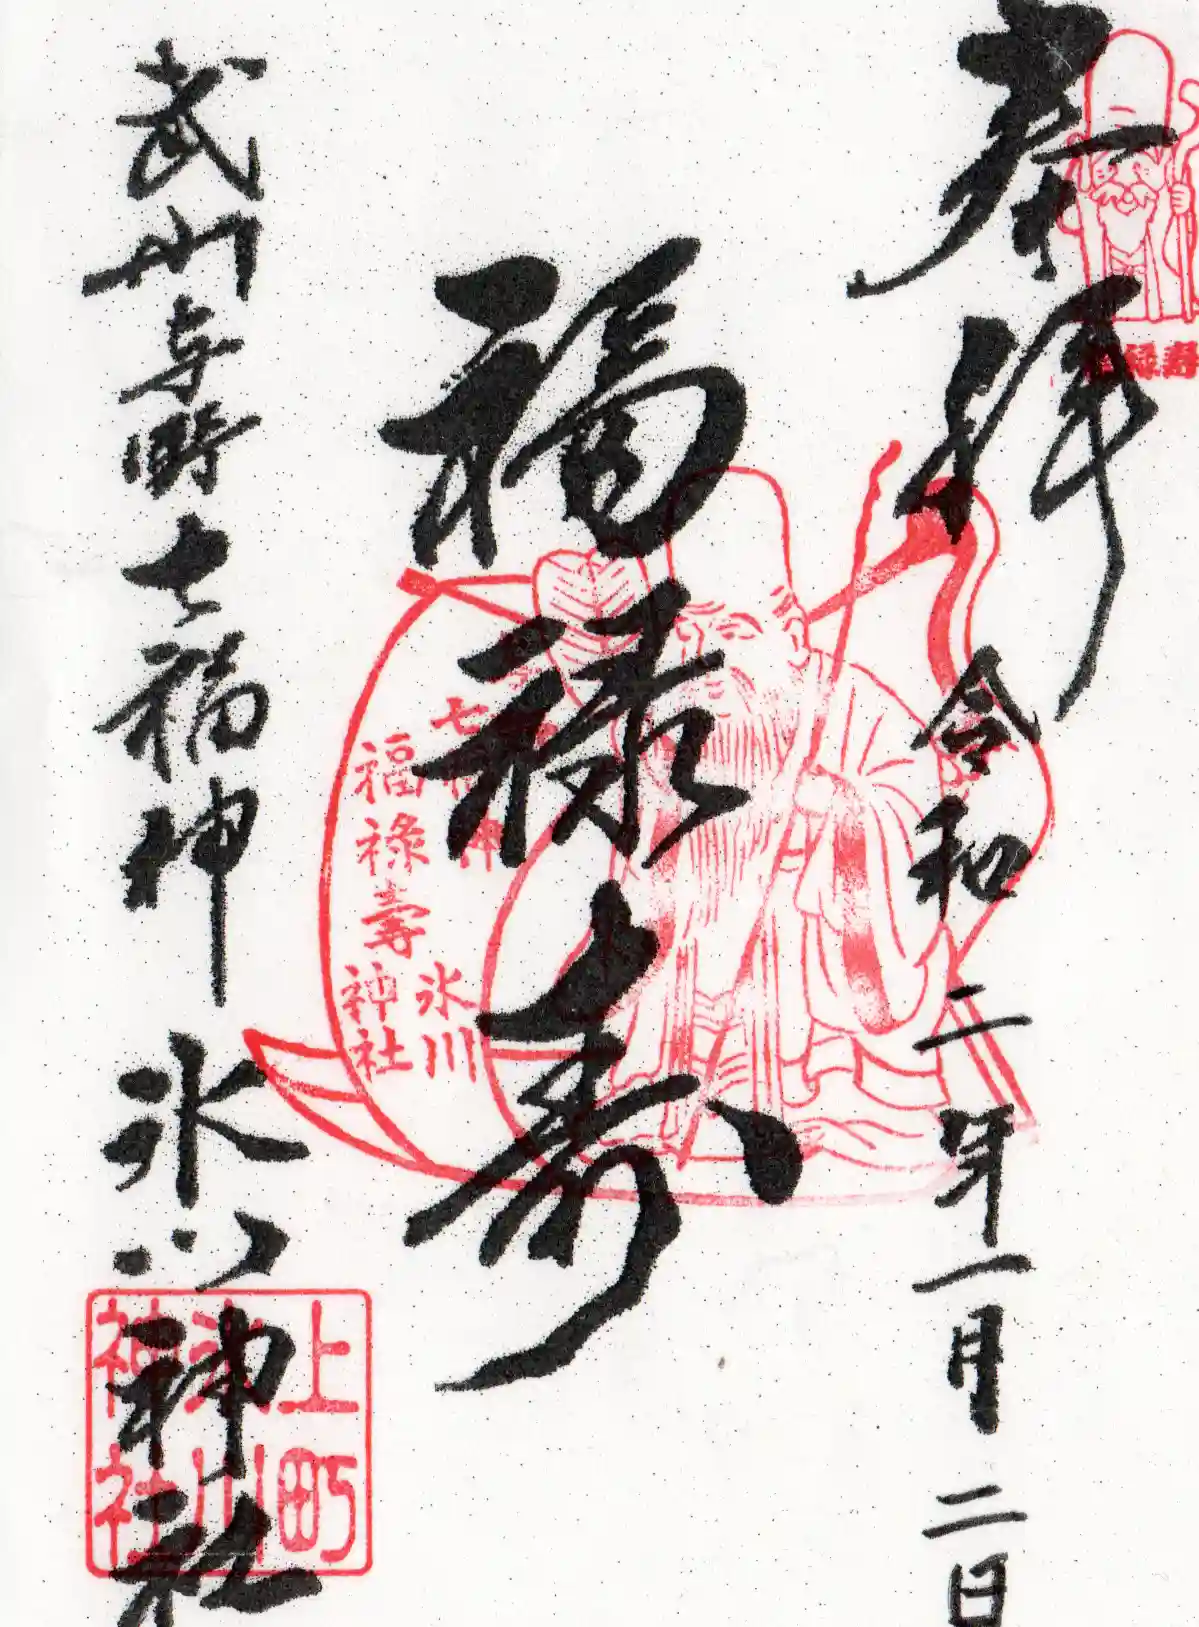 奉拝 令和二年一月二日
禄寿
福禄寿
七福神
福祿壽
氷川
神社
武州与野七福神 氷川神社
上町
氷川
神社